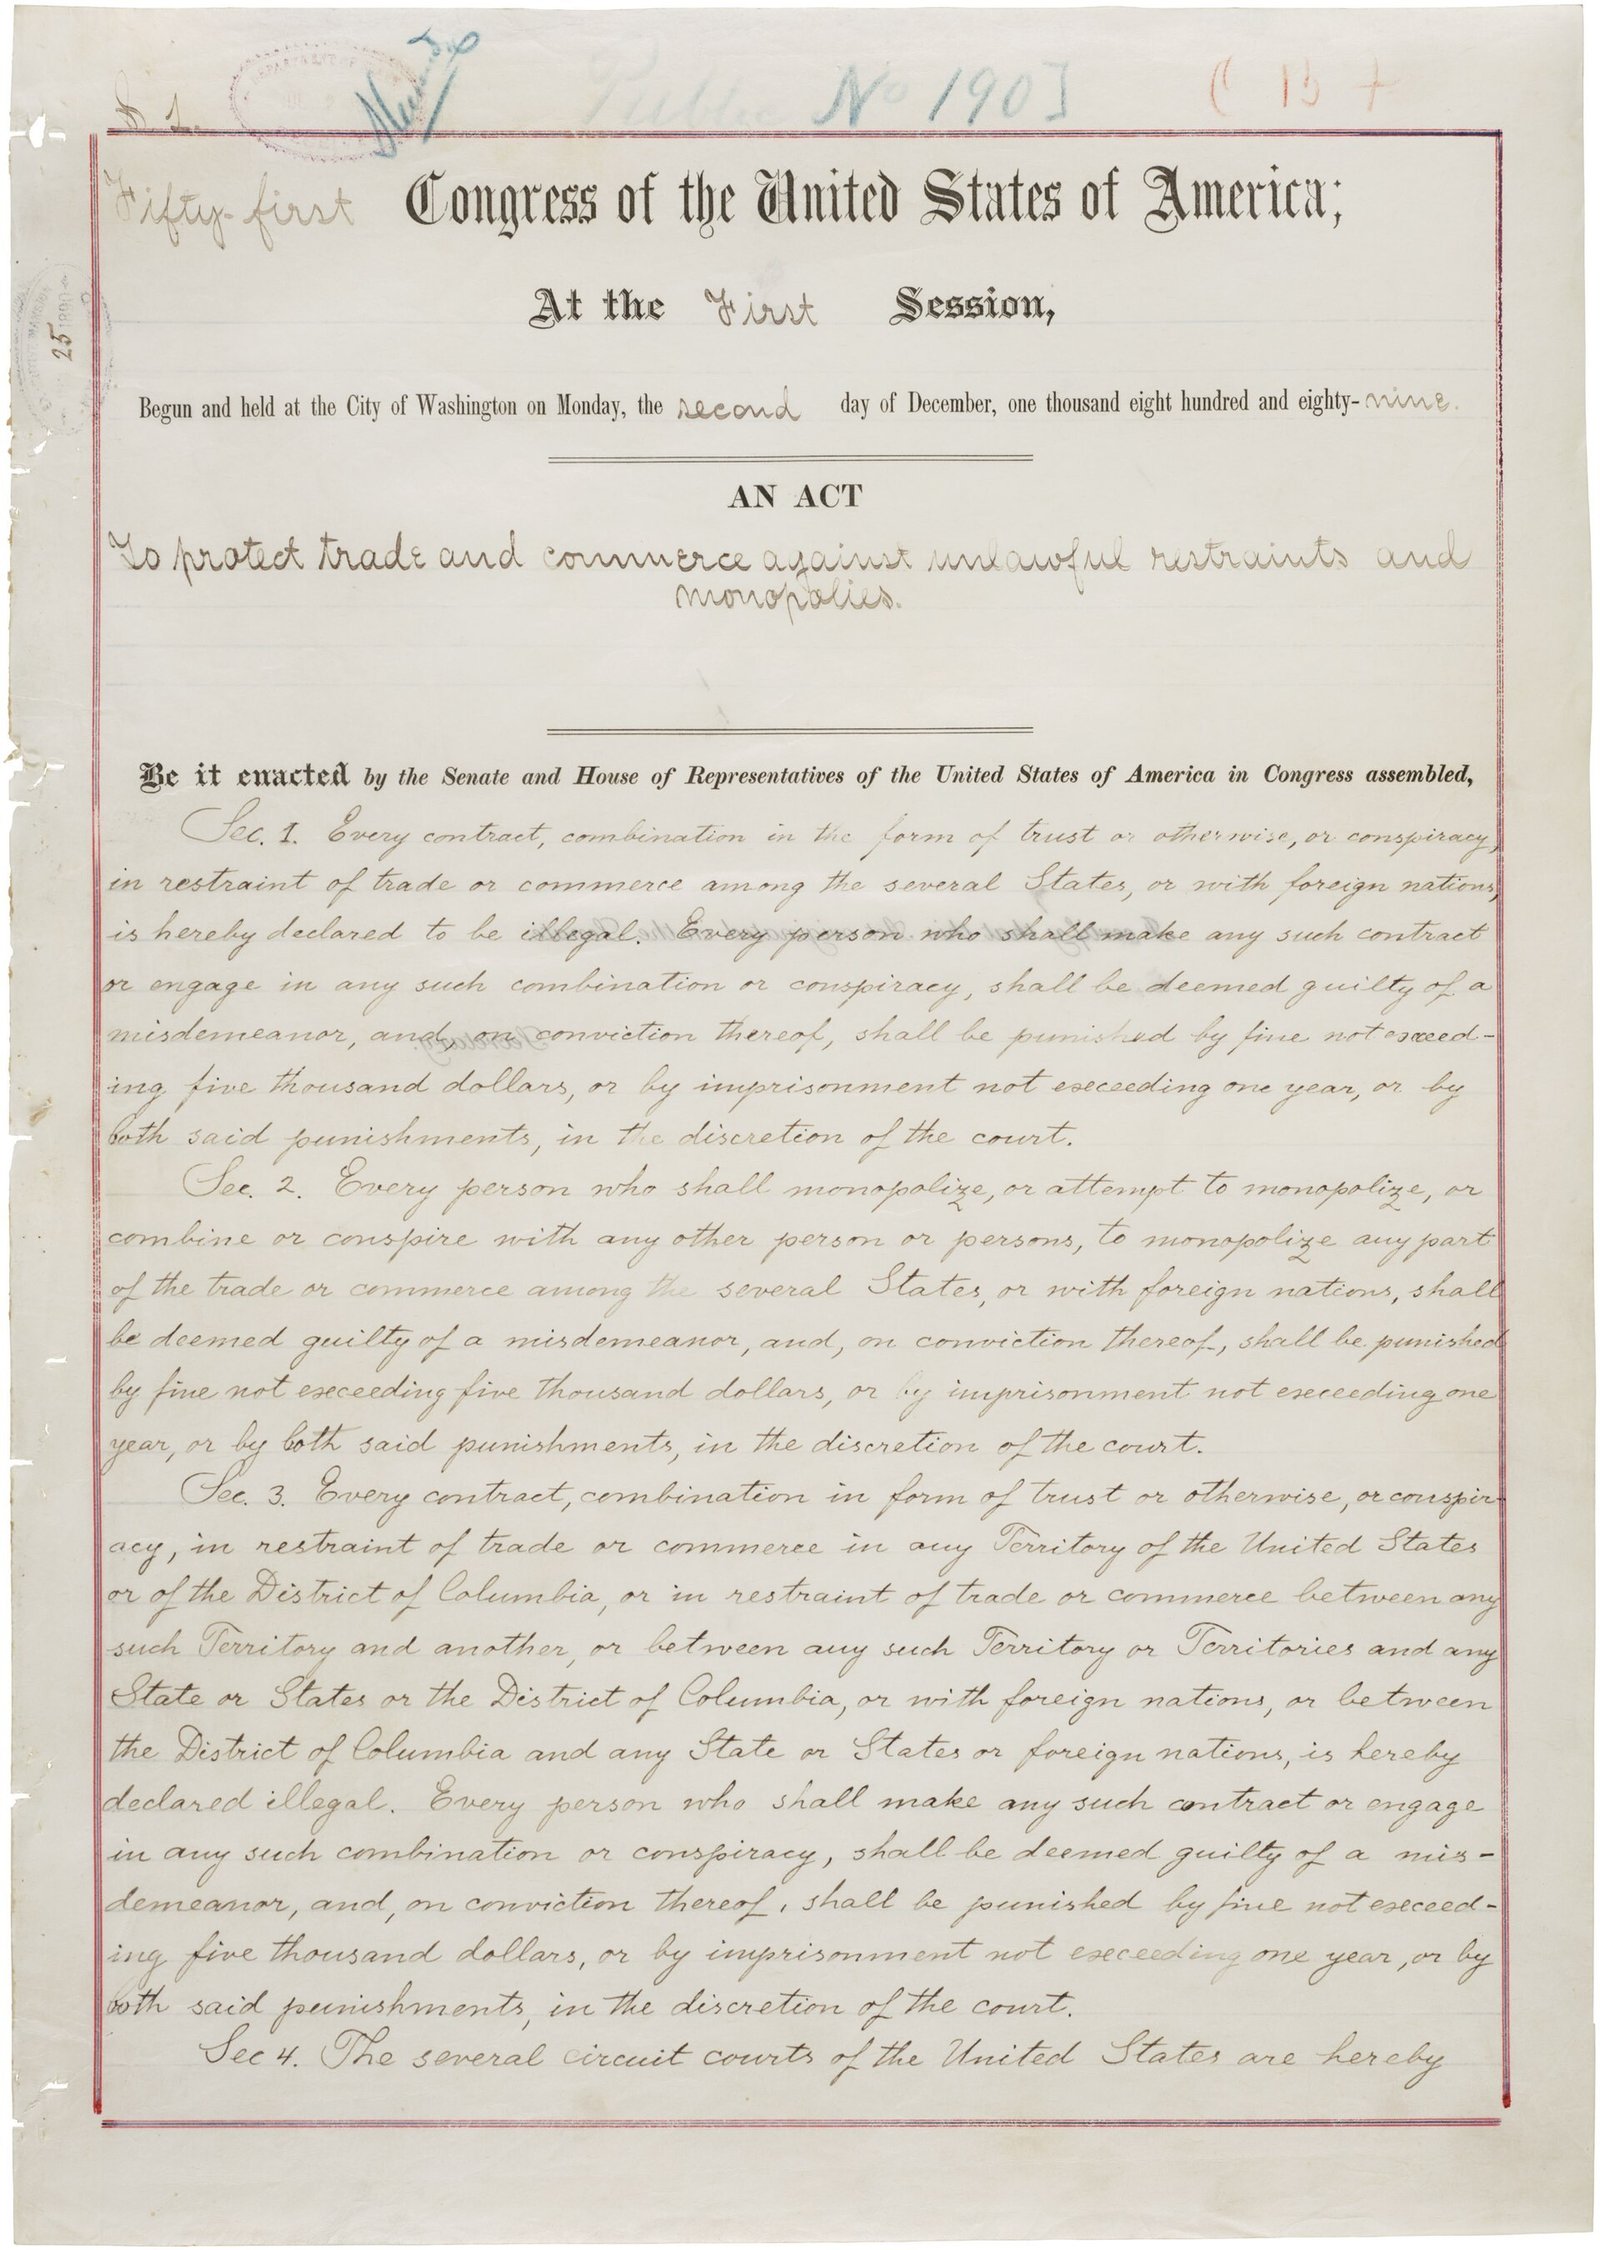 S. 1.
Public No 190]
Fifty-first Congress of the United States of America;
At the First Session,
Begun and held at the City of Washington on Monday, the second day of December, one thousand eight hundred and eighty-nine.
AN ACT
To protect trade and commerce against unlawful restraints and
monopolies.
Be it enacted by the Senate and House of Representatives of the United States of America in Congress assembled,
Sec. 1. Every contract, combination in the form of trust or otherwise, or conspiracy,
in restraint of trade or commerce among the several States, or with foreign nations,
is hereby declared to be illegal. Every person who shall make any such contract
or engage in any such combination or conspiracy, shall be deemed guilty of a
misdemeanor, and, on conviction thereof, shall be punished by fine not exceed-
ing five thousand dollars, or by imprisonment not exceeding one year, or by
both said punishments, in the discretion of the court.
Sec. 2. Every person who shall monopolize, or attempt to monopolize, or
combine or conspire with any other person or persons, to monopolize any part
of the trade or commerce among the several States, or with foreign nations, shall
be deemed guilty of a misdemeanor, and, on conviction thereof, shall be punished
by fine not exceeding five thousand dollars, or by imprisonment not exceeding one
year, or by both said punishments, in the discretion of the court.
Sec. 3. Every contract, combination in form of trust or otherwise, or conspir-
acy, in restraint of trade or commerce in any Territory of the United States
or of the District of Columbia, or in restraint of trade or commerce between any
such Territory and another, or between any such Territory or Territories and any
State or States or the District of Columbia, or with foreign nations, or between
the District of Columbia and any State or States or foreign nations, is hereby
declared illegal. Every person who shall make any such contract or engage
in any such combination or conspiracy, shall be deemed guilty of a mis-
demeanor, and, on conviction thereof, shall be punished by fine not exceed-
ing five thousand dollars, or by imprisonment not exceeding one year, or by
both said punishments, in the discretion of the court.
Sec 4. The several circuit courts of the United States are hereby
25